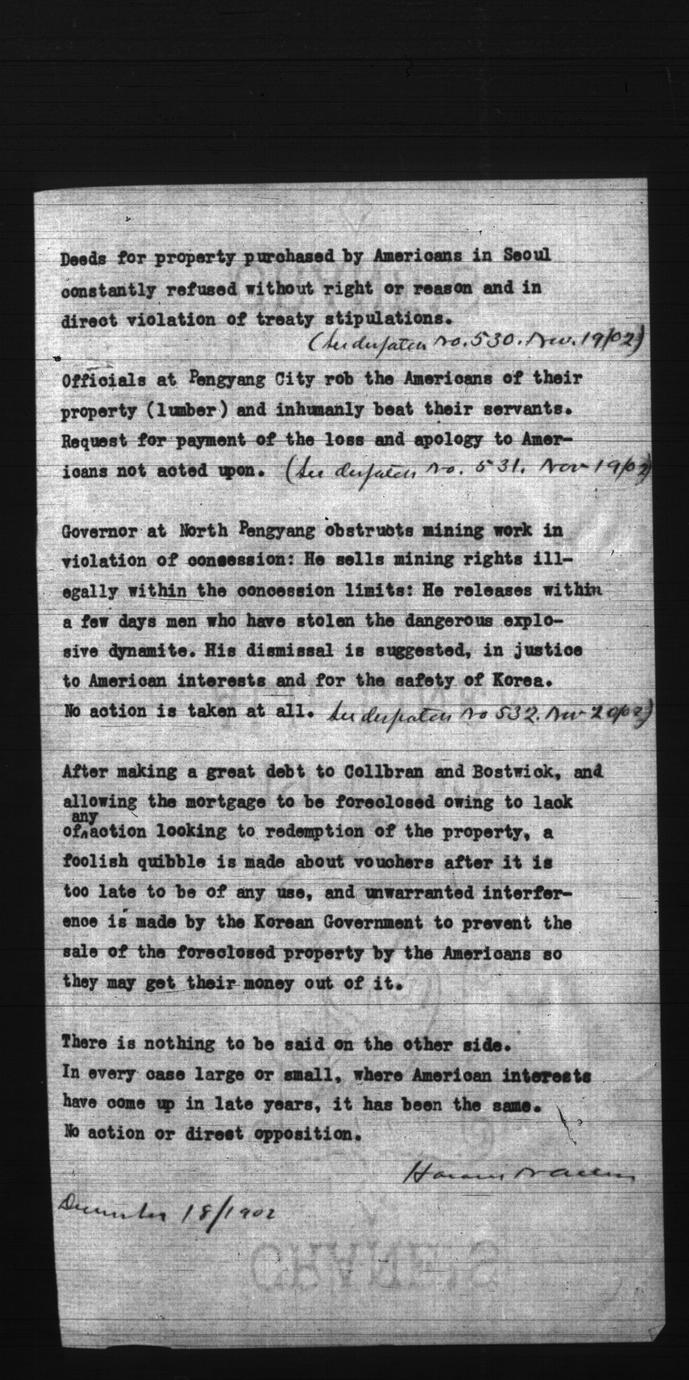 Deeds for property purchased by Americans in Seoul
constantly refused without right or reason and in
direct violation of treaty stipulations.
(See dispatch No. 530. Nov. 19/02)
Officials at Pengyang City rob the Americans of their
property (lumber) and inhumanly beat their servants.
Request for payment of the loss and apology to Amer-
icans not acted upon. (See dispatch No. 531. Nov 19/02)
Governor at North Pengyang obstructs mining work in
violation of concession: He sells mining rights ill-
egally within the concession limits: He releases within
a few days men who have stolen the dangerous explo-
sive dynamite. His dismissal is suggested, in justice
to American interests and for the safety of Korea.
No action is taken at all. See dispatch No 532. Nov 20/02)
After making a great debt to Collbran and Bostwick, and
allowing the mortgage to be foreclosed owing to lack
any
of action looking to redemption of the property, a
foolish quibble is made about vouchers after it is
too late to be of any use, and unwarranted interfer-
ence is made by the Korean Government to prevent the
sale of the foreclosed property by the Americans so
they may get their money out of it.
There is nothing to be said on the other side.
In every case large or small, where American interests
have come up in late years, it has been the same.
No action or direct opposition.
Horace N Allen
December 18/1902
CRANE'S